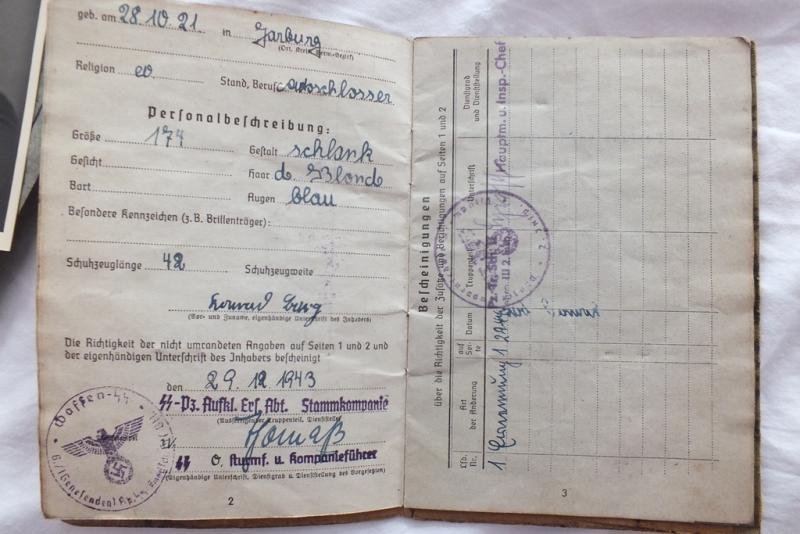 geb. am 28.10.21. in Garburg
(Ort, Kreis, Verw.-Bezirk)
Religion ev Stand, Beruf Autoschlosser
Personalbeschreibung:
Größe 174 Gestalt schlank
Gesicht Haar d. Blond
Bart Augen blau
Besondere Kennzeichen (z. B. Brillenträger):
Schuhzeuglänge 42 Schuhzeugweite
Konrad Burg
(Vor- und Zuname, eigenhändige Unterschrift des Inhabers)
Die Richtigkeit der nicht umrandeten Angaben auf Seiten 1 und 2 und
der eigenhändigen Unterschrift des Inhabers bescheinigt
den 29. 12 1943
SS-Pz. Aufkl. Ers. Abt. Stammkompanie
(Ausfertigender Truppenteil, Dienststelle)
SS O. Sturmf. u. Kompanieführer
(Eigenhändige Unterschrift, Dienstgrad u. Dienststellung des Vorgesetzten)
Waffen-SS
2
Bescheinigungen
über die Richtigkeit der Zusätze und Berichtigungen auf Seiten 1 und 2
Lfd. Nr.
Art der Änderung
auf Seite
Datum
Truppenteil
Unterschrift
Dienstgrad und Dienststellung
1
1
Hauptm. u. Insp.-Chef
3